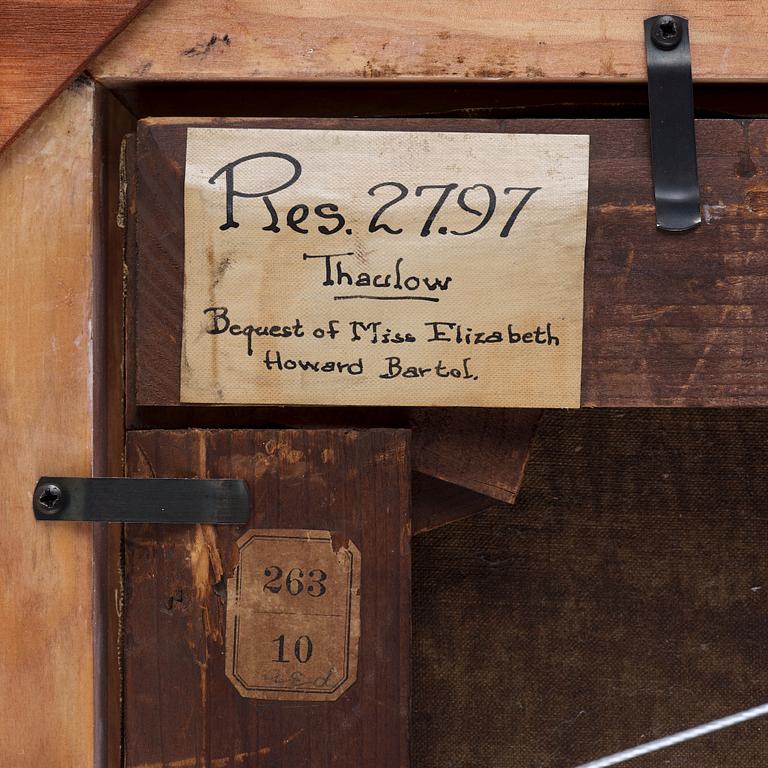 Res. 27.97
Thaulow
Bequest of Miss Elizabeth
Howard Bartol.
263
10